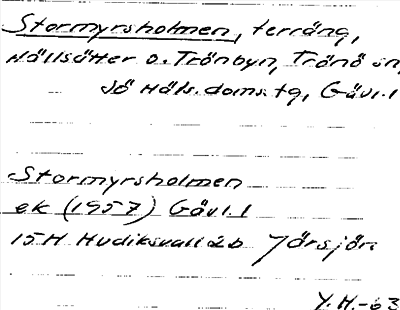 Stormyrsholmen, terräng,
Hällsätter o. Trönbyn, Trönö sn,
Sö Häls. doms. tg, Gävl. l
Stormyrsholmen
ek (1957) Gävl. l
15H Hudiksvall 2b Järsjön
Y.H.-63